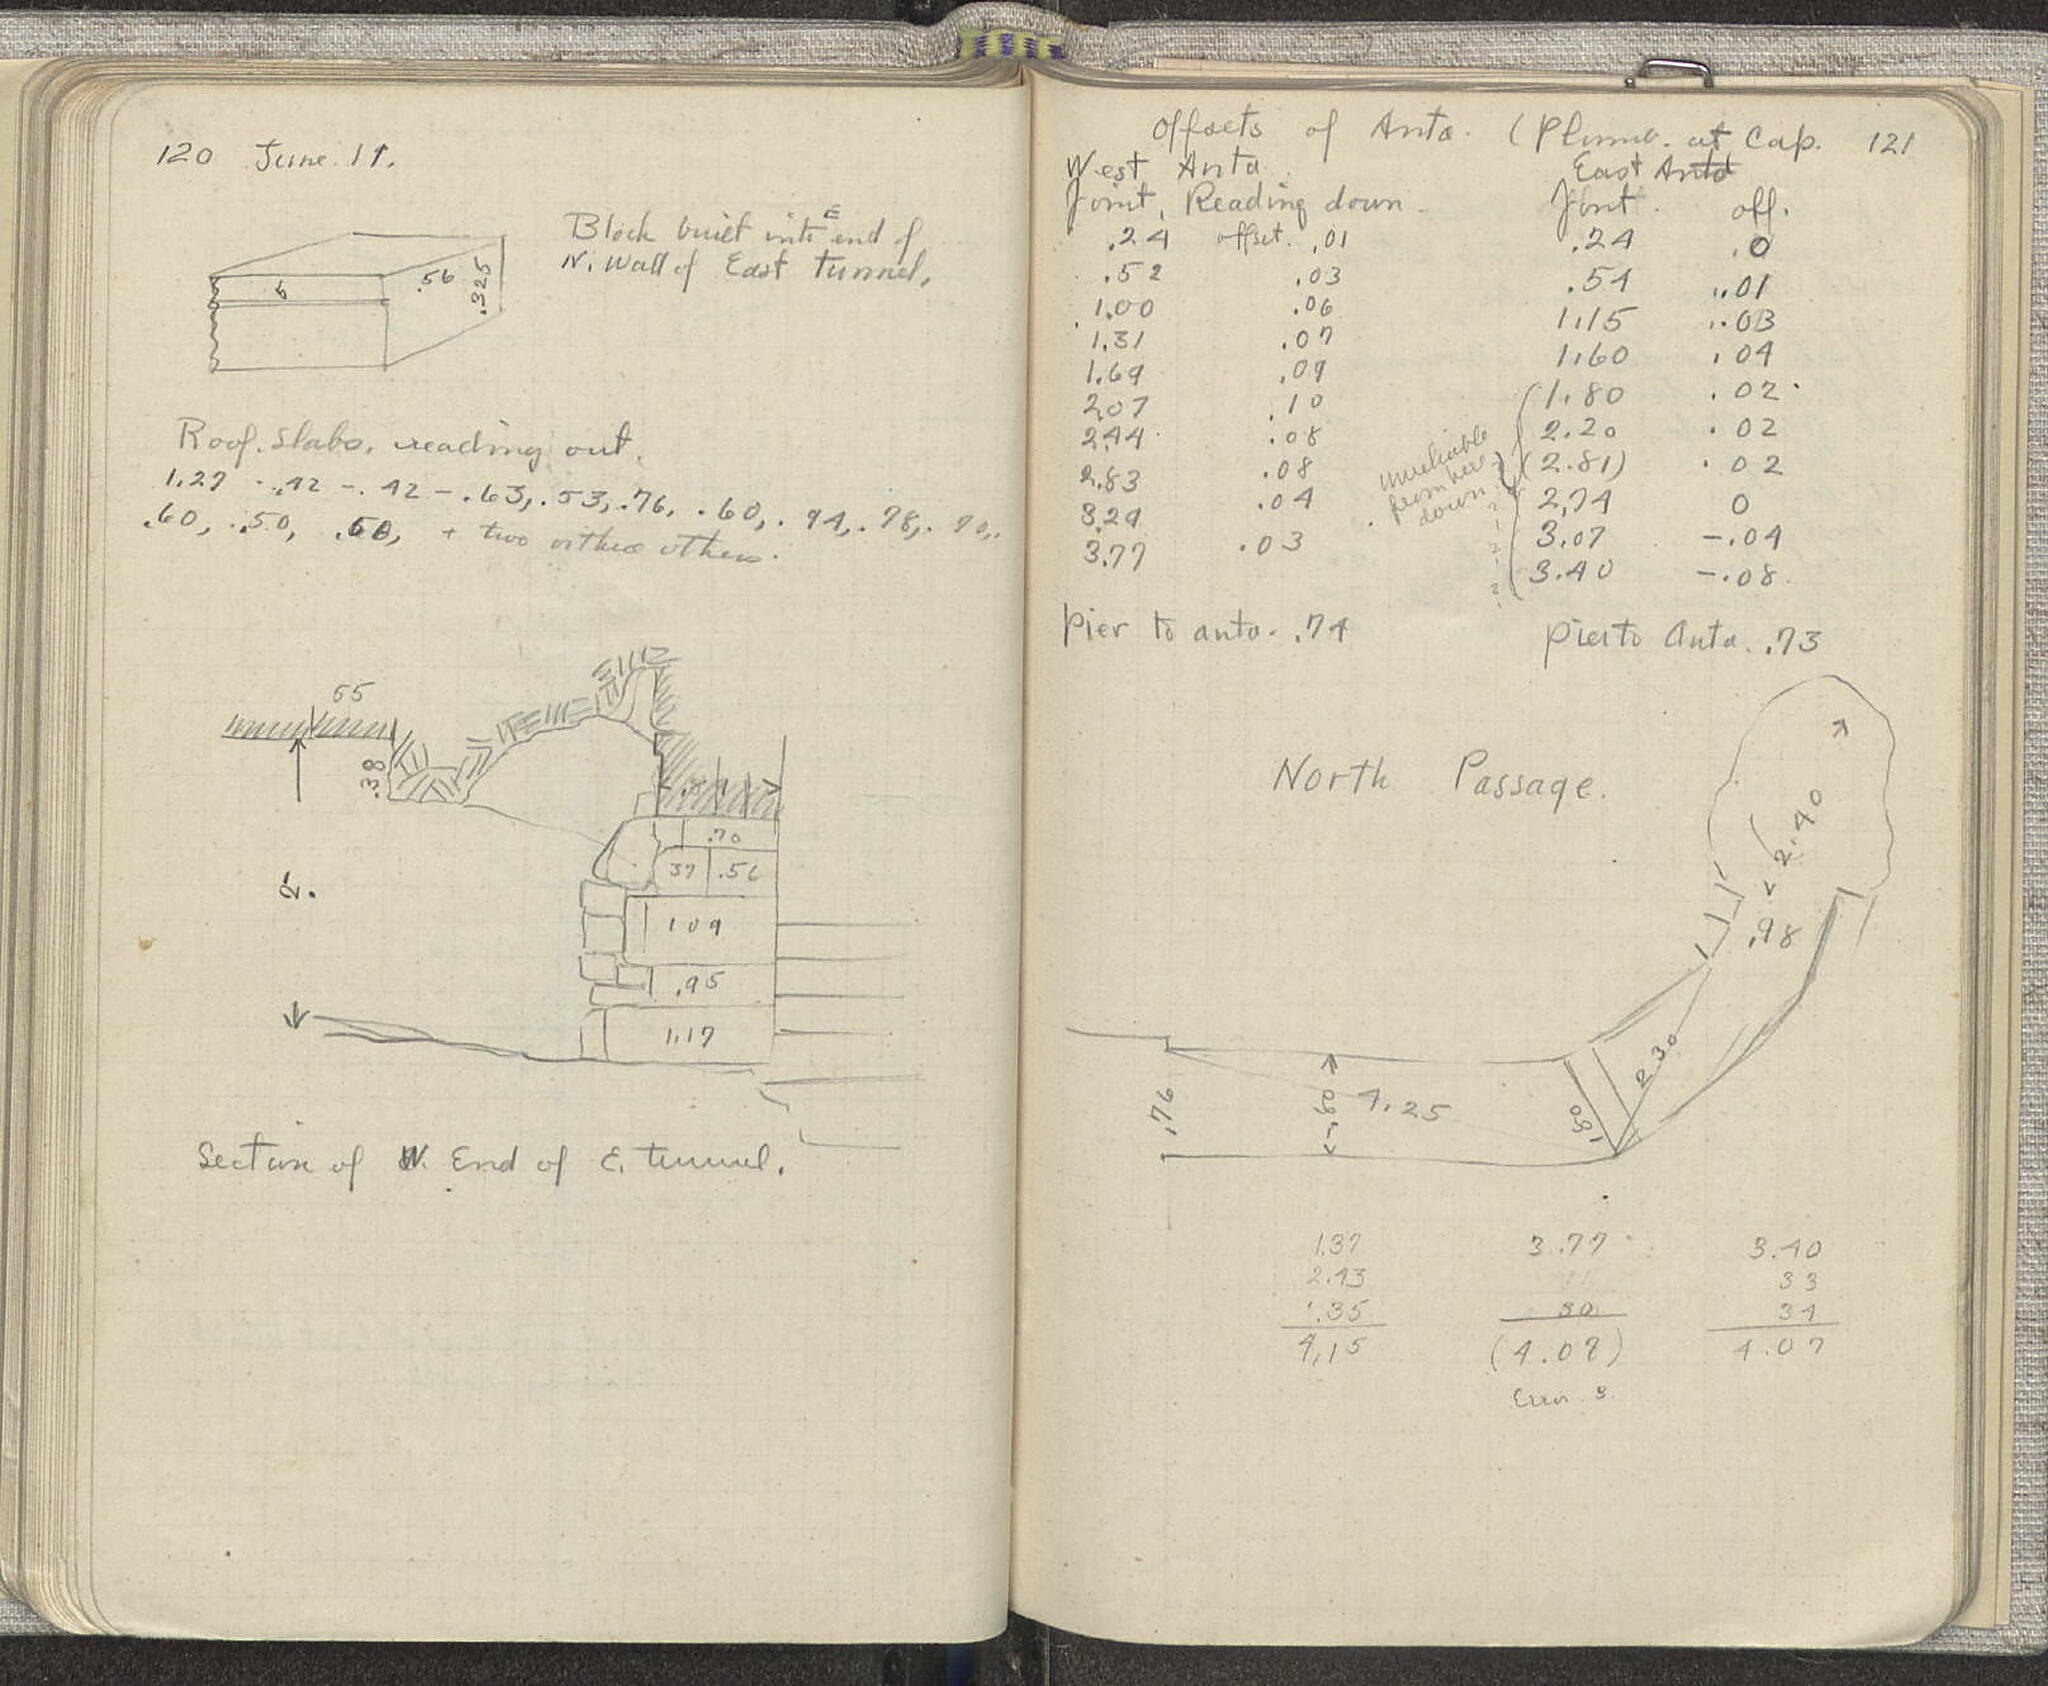 120 June 11.
Block built into E end of
N. Wall of East tunnel.
.56
.325
Roof. Slabs. reading out.
1.27 - .42 - .42 - .63, .53, .76, .60, .94, .78, .70,
.60, .50, .50, + two others.
55
.38
.70
37 .56
1 09
.95
1.17
Section of W. End of E. tunnel.
Offsets of Anta. (Plumb. at Cap. 121
West Anta East Anta
Joint, Reading down. Joint. off.
.24 offset. .01 .24 .0
.52 .03 .54 .01
1.00 .06 1.15 .03
1.31 .07 1.60 .04
1.69 .09 (1.80 .02
2.07 .10 2.20 .02
2.44 .08 (2.81) .02
2.83 .08 2.74 0
3.29 .04 3.07 -.04
3.77 .03 3.40 -.08
unreliable
from here
down
Pier to anta. .74 Pier to Anta. .73
North Passage.
2.40
.98
2.30
.76
4.25
1.37 3.77 3.40
2.43 33
.35 30 34
4.15 (4.07) 4.07